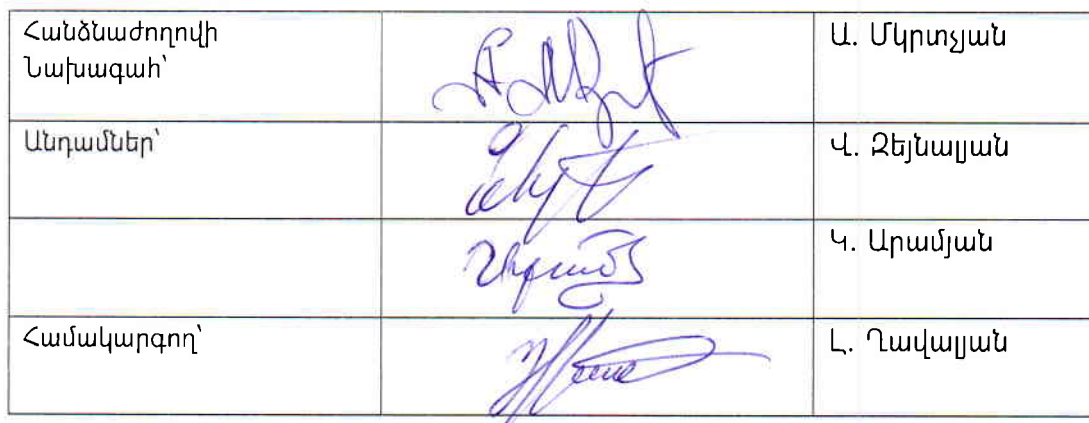 Հանձնաժողովի
Նախագահ՝
Ա. Մկրտչյան
Անդամներ՝
Վ. Զեյնալյան
Կ. Արամյան
Համակարգող՝
Լ. Ղավալյան